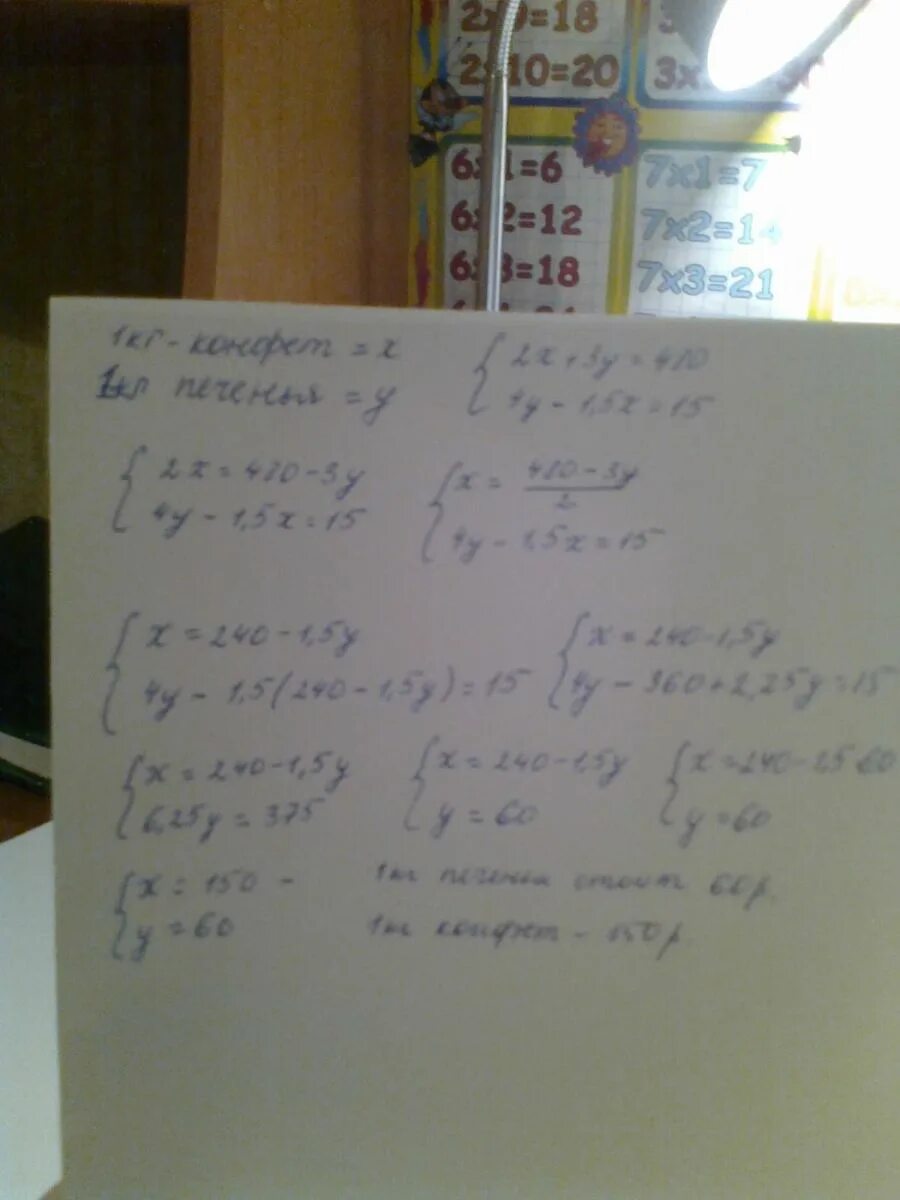 2x9=18
2x10=20
6x1=6
7x1=7
6x2=12
7x2=14
6x3=18
7x3=21
1кг - конфет = x
1кг печенья = y
{ 2x + 3y = 480
4y - 1,5x = 15
{ 2x = 480 - 3y
4y - 1,5x = 15
{ x = (480 - 3y)/2
4y - 1,5x = 15
{ x = 240 - 1,5y
4y - 1,5(240 - 1,5y) = 15
{ x = 240 - 1,5y
4y - 360 + 2,25y = 15
{ x = 240 - 1,5y
6,25y = 375
{ x = 240 - 1,5y
y = 60
{ x = 240 -
y = 60
{ x = 150 -
y = 60
1кг печенья стоит 60р.
1кг конфет - 150р.